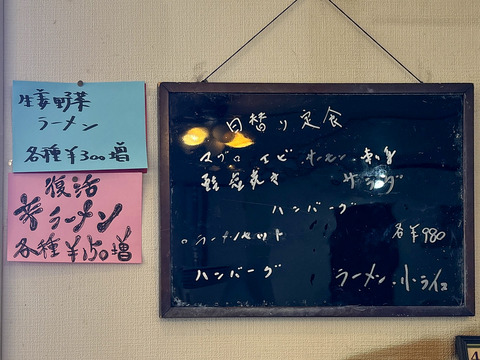 生姜野菜
ラーメン
各種¥300増
復活
ラーメン
各種¥150増
日替り定食
マグロ エビ サーモン
サラダ
ハンバーグ
ラーメンセット 各¥980
ハンバーグ ラーメン 小ライス